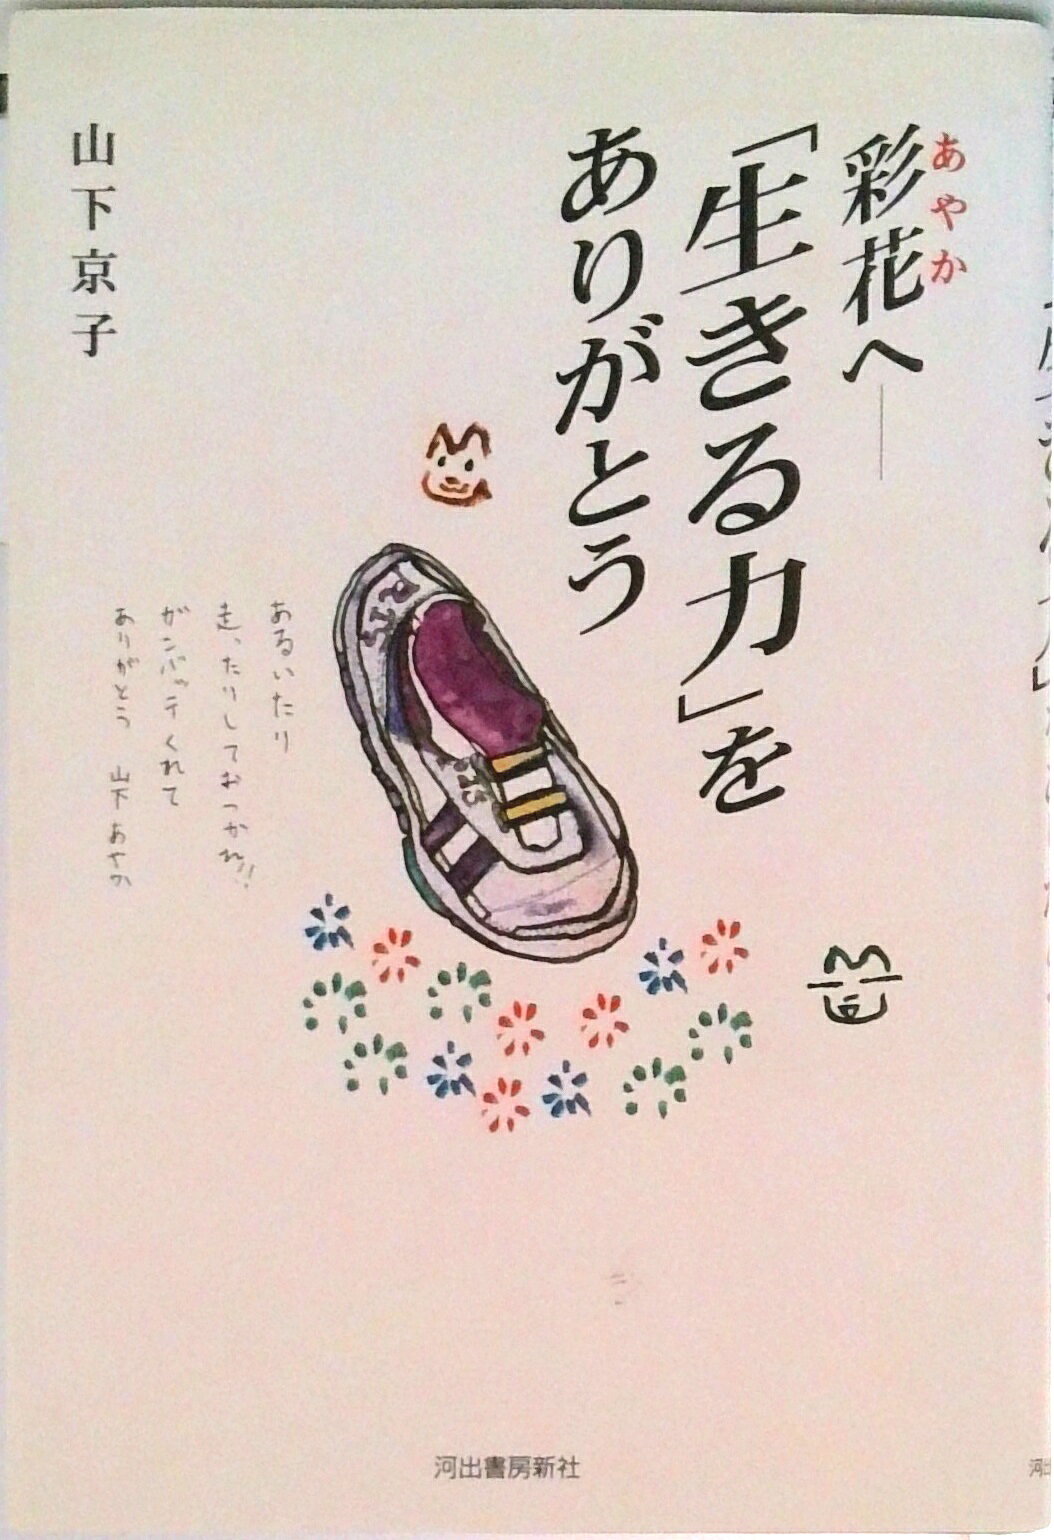 彩花へ——
あやか
「生きる力」を
ありがとう
山下京子
あるいたり
走ったりしておつかれ!!
ガンバッテくれて
ありがとう 山下あやか
河出書房新社